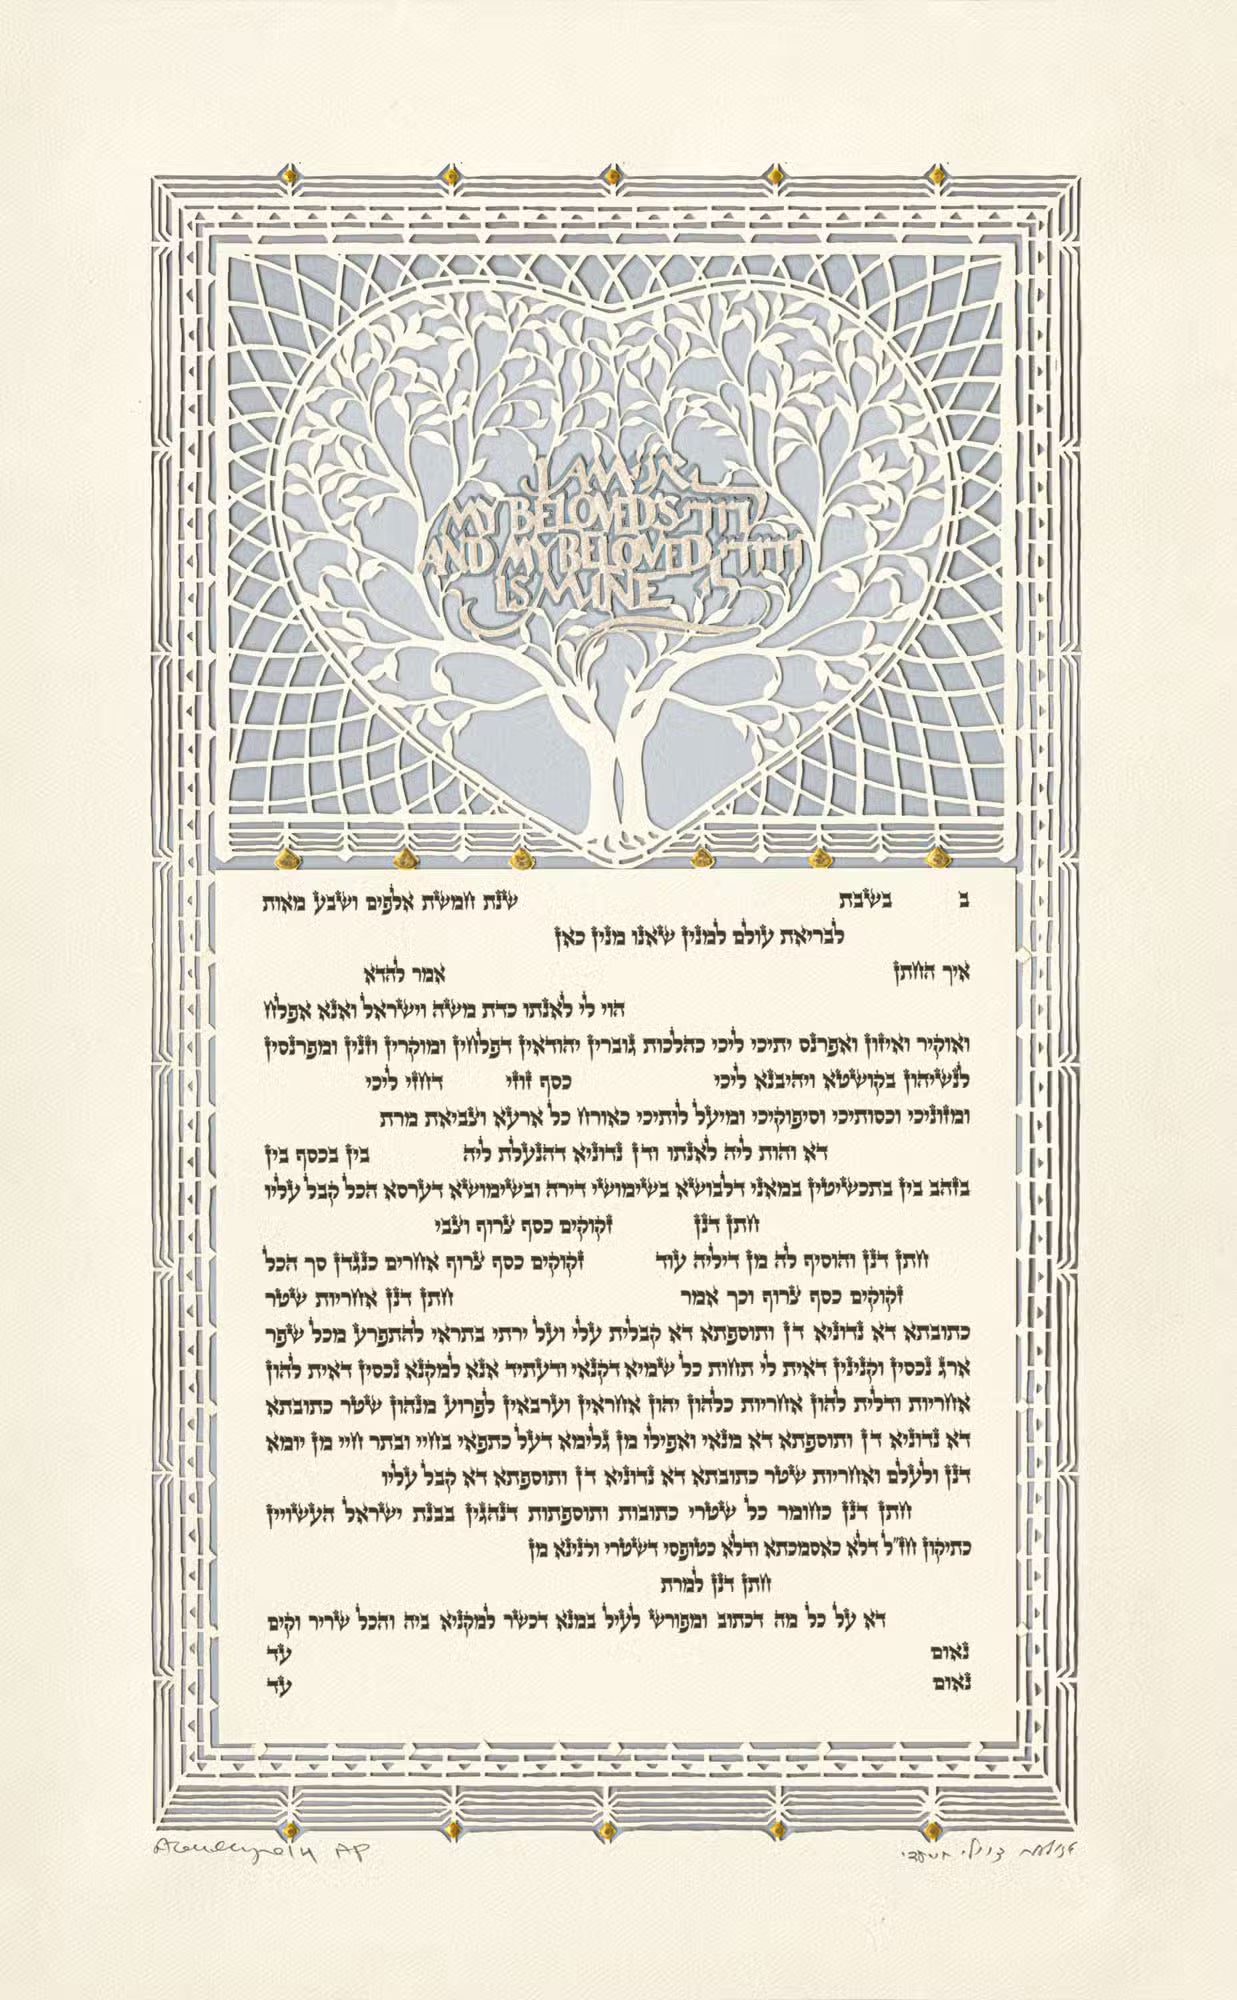 I AM אני
MY BELOVED'S לדודי
AND MY BELOVED ודודי
IS MINE לי
ב בשבת שנת חמשת אלפים ושבע מאות
לבריאת עולם למנין שאנו מנין כאן
איך החתן אמר להדא
הוי לי לאנתו כדת משה וישראל ואנא אפלח
ואוקיר ואיזון ואפרנס יתיכי ליכי כהלכות גוברין יהודאין דפלחין ומוקרין וזנין ומפרנסין
לנשיהון בקושטא ויהיבנא ליכי כסף זוזי דחזי ליכי
ומזוניכי וכסותיכי וסיפוקיכי ומיעל לותיכי כאורח כל ארעא וצביאת מרת
דא והות ליה לאנתו ודן נדוניא דהנעלת ליה בין בכסף בין
בזהב בין בתכשיטין במאני דלבושא בשימושי דירה ובשימושא דערסא הכל קבל עליו
חתן דנן זקוקים כסף צרוף וצבי
חתן דנן והוסיף לה מן דיליה עוד זקוקים כסף צרוף אחרים כנגדן סך הכל
זקוקים כסף צרוף וכך אמר חתן דנן אחריות שטר
כתובתא דא נדוניא דן ותוספתא דא קבלית עלי ועל ירתי בתראי להתפרע מכל שפר
ארג נכסין וקנינין דאית לי תחות כל שמיא דקנאי ודעתיד אנא למקנא נכסין דאית להון
אחריות ודלית להון אחריות כלהון יהון אחראין וערבאין לפרוע מנהון שטר כתובתא
דא נדוניא דן ותוספתא דא מנאי ואפילו מן גלימא דעל כתפאי בחיי ובתר חיי מן יומא
דנן ולעלם ואחריות שטר כתובתא דא נדוניא דן ותוספתא דא קבל עליו
חתן דנן כחומר כל שטרי כתובות ותוספתות דנהגין בבנת ישראל העשויין
כתיקון חז"ל דלא כאסמכתא ודלא כטופסי דשטרי וקנינא מן
חתן דנן למרת
דא על כל מה דכתוב ומפורש לעיל במנא דכשר למקניא ביה והכל שריר וקים
נאום עד
נאום עד
AP